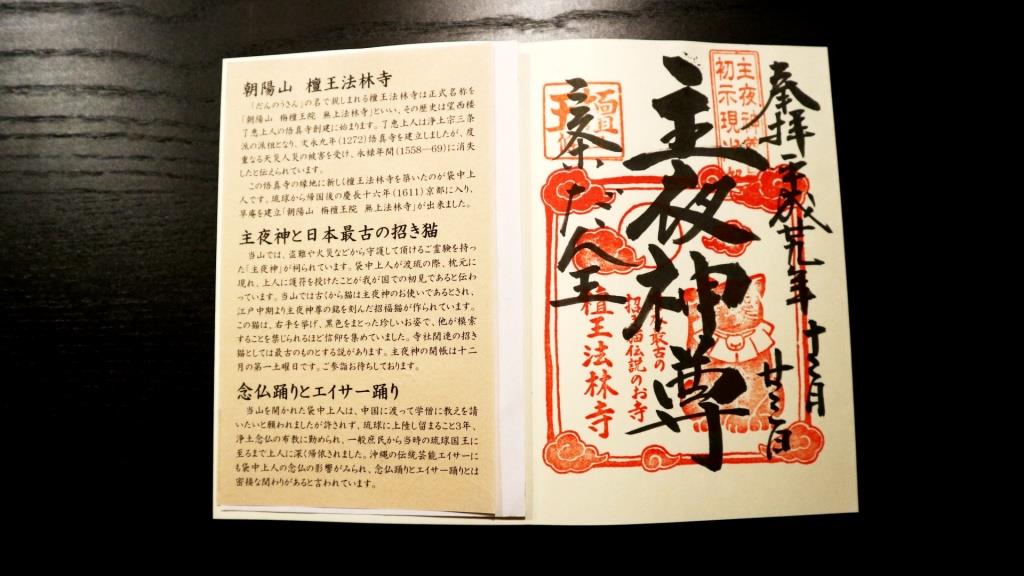 朝陽山 檀王法林寺
「だんのうさん」の名で親しまれる檀王法林寺は正式名称を
「朝陽山 栴檀王院 無上法林寺」といい、その歴史は望西楼
了恵上人の悟真寺創建に始まります。了恵上人は浄土宗三条
派の派祖となり、文永九年(1272)悟真寺を建立しましたが、度
重なる天災人災の被害を受け、永禄年間(1558―69)に消失
したと伝えられています。
この悟真寺の縁地に新しく檀王法林寺を築いたのが袋中上
人です。琉球から帰国後の慶長十六年(1611)京都に入り、
草庵を建立「朝陽山 栴檀王院 無上法林寺」が出来ました。
主夜神と日本最古の招き猫
当山では、盗難や火災などから守護して頂けるご霊験を持っ
た「主夜神」が祀られています。袋中上人が渡琉の際、枕元に
現れ、上人に護符を授けたことが我が国での初見であると伝わ
っています。当山では古くから猫は主夜神のお使いであるとされ、
江戸中期より主夜神尊の銘を刻んだ招福猫が作られています。
この猫は、右手を挙げ、黒色をまとった珍しいお姿で、他が模索
することを禁じられるほど信仰を集めていました。寺社関連の招き
猫としては最古のものとする説があります。主夜神の開帳は十二
月の第一土曜日です。ご参詣お待ちしております。
念仏踊りとエイサー踊り
当山を開かれた袋中上人は、中国に渡って学僧に教えを請
いたいと願われましたが許されず、琉球に上陸し留まること3年、
浄土念仏の布教に勤められ、一般庶民から当時の琉球国王に
至るまで上人に深く帰依されました。沖縄の伝統芸能エイサーに
も袋中上人の念仏の影響がみられ、念仏踊りとエイサー踊りとは
密接な関わりがあると言われています。
奉拝 平成廿九年 十二月
廿三日
主夜神尊
初示現
主夜神尊
最古の
招き猫伝説のお寺
檀王法林寺
三条だん王